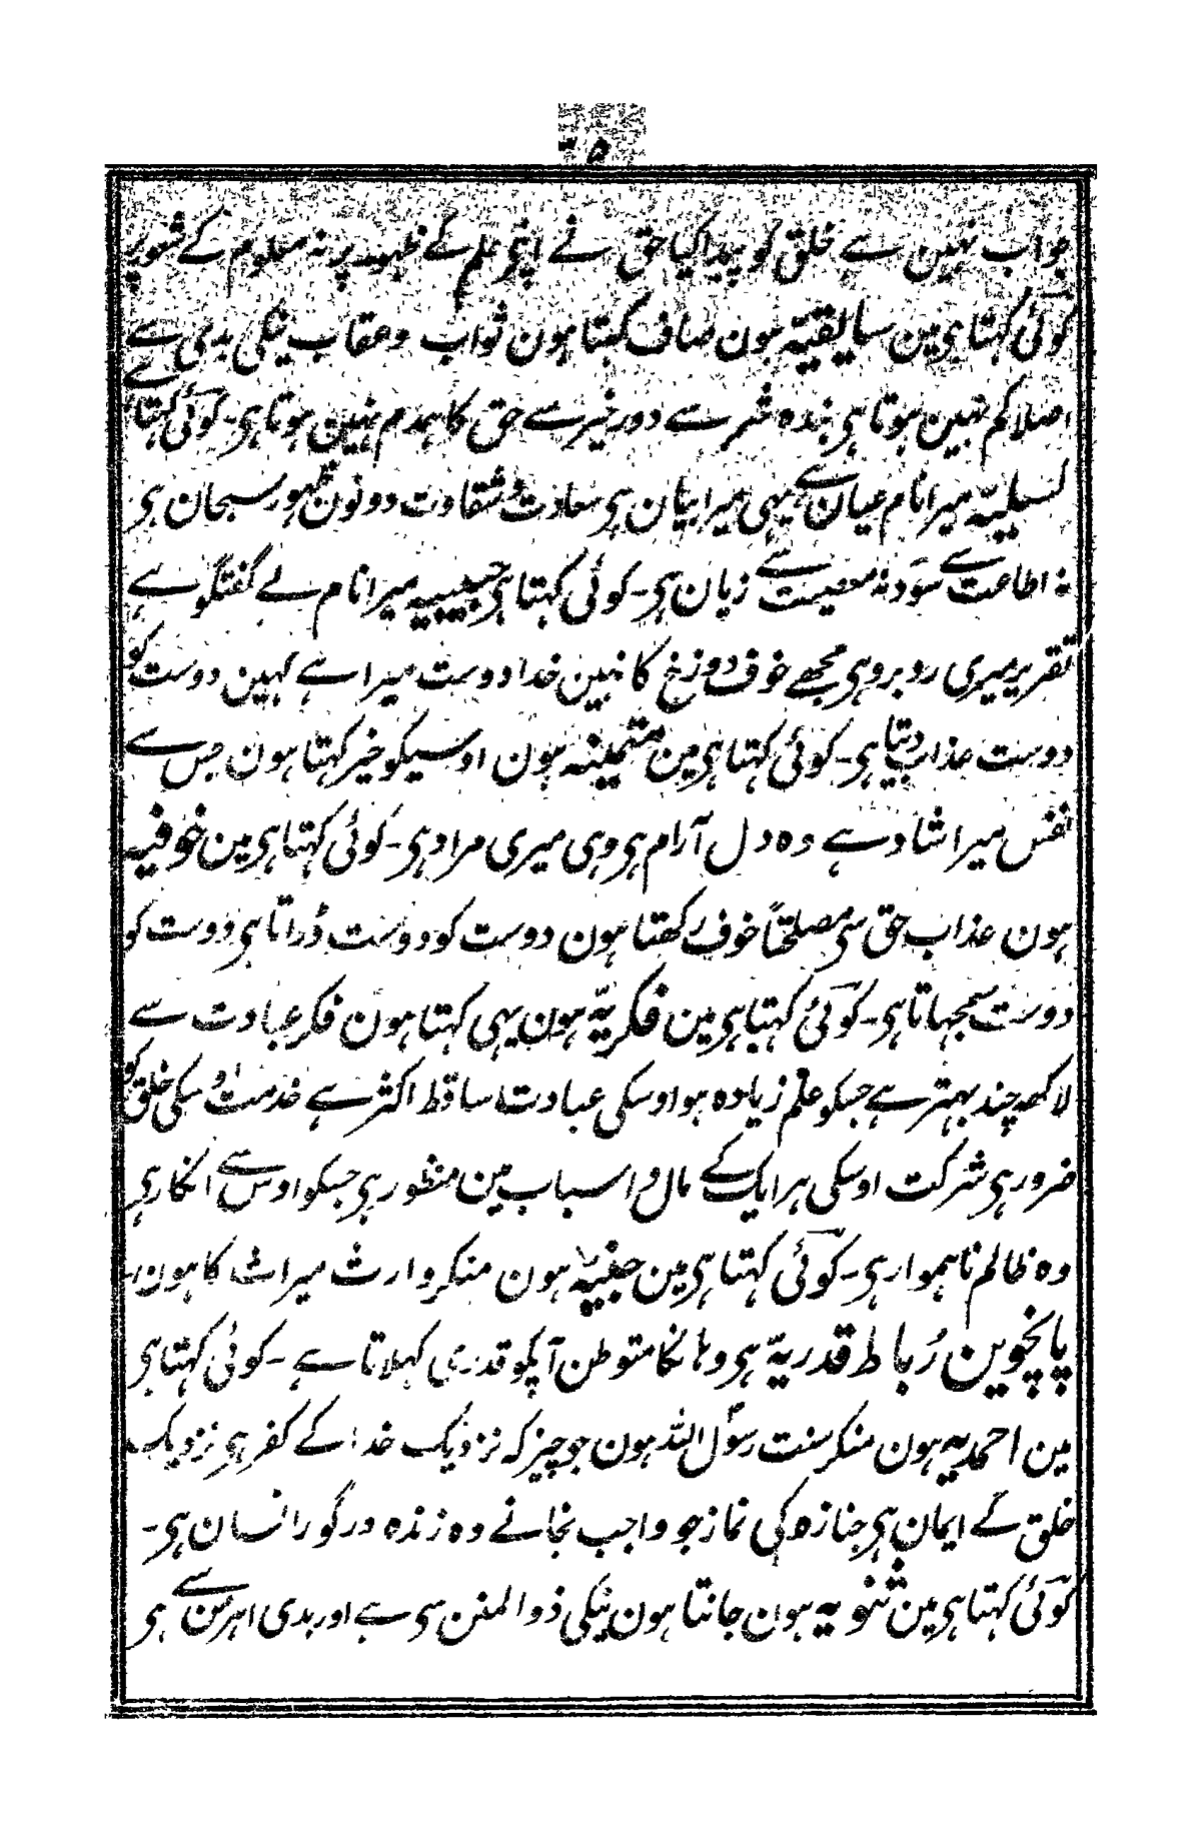 جواب نہین ہے خلق کو پیدا کیا حق نے اپنے علم کے ظہور پر نہ معلوم کے شور پر
کوئی کہتا ہی مین سابقیہ ہون صاف کہتا ہون ثواب و عقاب نیکی بدی سے
اصلا کم نہین ہوتا ہی بندہ شر سے دور خیر سے حق کا ہمدم نہین ہوتا ہی۔ کوئی کہتا ہے
کسیلیہ میرا نام عیان ہے یہی میرا بیان ہی سعادت و شقاوت دونون ظہور سبحان ہی
نہ اطاعت سے سود نہ معصیت سے زیان ہی۔ کوئی کہتا ہی حبیبیہ میرا نام ہے گفتگو سے
تقریر میری روبرو ہی مجھے خوف دوزخ کا نہین خدا دوست میرا ہے کہین دوست کو
دوست عذاب دیتا ہی۔ کوئی کہتا ہی مین متمنیہ ہون اوسیکو خیر کہتا ہون جس سے
نفس میرا شاد ہے وہ دل آرام ہی وہی میری مراد ہی۔ کوئی کہتا ہی مین خوفیہ
ہون عذاب حق سی مصلحتاً خوف رکھتا ہون دوست کو دوست ڈراتا ہی دوست کو
دوست سمجھاتا ہی۔ کوئی کہتا ہی مین فکریہ ہون یہی کہتا ہون فکر عبادت سے
لاکھ چند بہتر ہے جسکو علم زیادہ ہو اوسکی عبادت ساقط اکثر ہے خدمت اوسکی خلق کو
ضرور ہی شرکت اوسکی ہر ایک کے مال و اسباب مین منظور ہی جسکو اوس سے انکار ہی
وہ ظالم ناہموار ہی۔ کوئی کہتا ہی مین حنفیہ ہون منکر وارث میراث کا ہون۔
پانچوین رُباط قدریہ ہی وہانکا متوطن آپکو قدری کہلاتا ہے۔ کوئی کہتا ہی
مین احمدیہ ہون منکر سنت رسول اللہ ہون جو چیز کہ نزدیک خدا کے کفر ہی نزدیک
خلق کے ایمان ہی جنازہ کی نماز جو واجب نجانے وہ زندہ درگور انسان ہی۔
کوئی کہتا ہی مین ثنویہ ہون جانتا ہون نیکی ذوالمنن سی ہے اور بدی اہرمن سے ہی